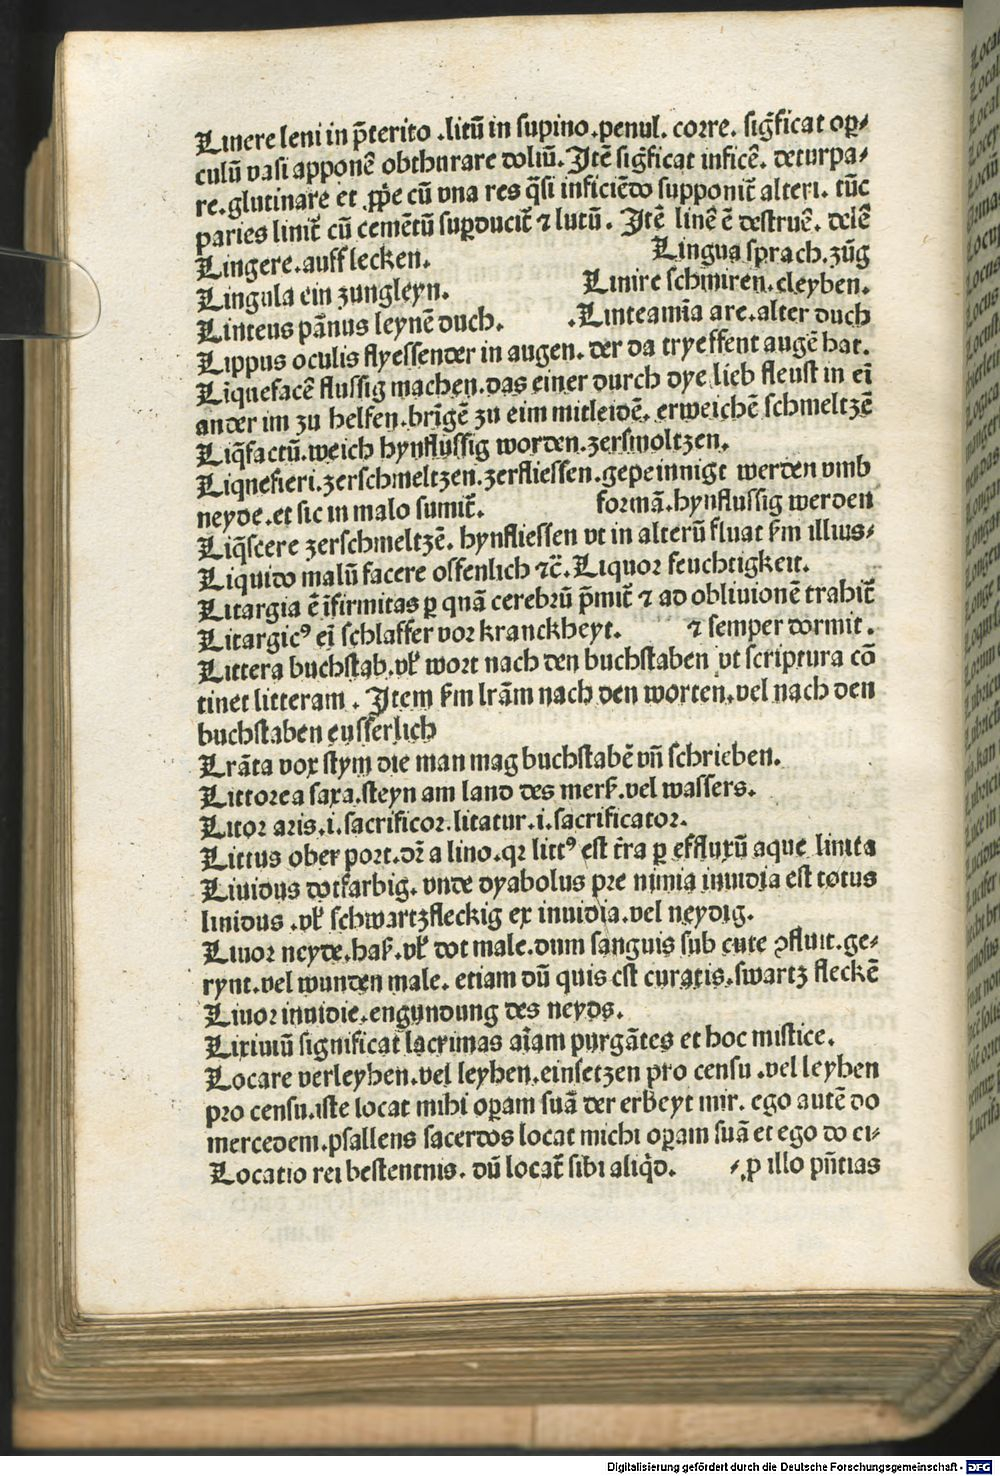 Linere leni in p̄terito .litū in supino.penul. corre. sigficat oꝑ⸗
culū vasi apponē obthurare doliū. Itē sigficat inficē. deturpa⸗
re.glutinare et ꝓpe cū vna res q̄si inficiēdo supponit̄ alteri. tūc
paries linit̄ cū cemētū suꝑducit̄ ⁊ lutū. Itē linē ē destruē. delē
Lingere.auff lecken. Lingua sprach.zūg
Lingula ein zungleyn. Linire schmiren.cleyben.
Linteus pānus leynē duch. .Linteamīa are.alter duch
Lippus oculis flyessender in augen. der da tryeffent augē hat.
Liquefacē flussig machen.das einer durch dye lieb fleust in eī
ander im zu helfen.brīgē zu eim mitleidē. erweichē schmeltzē
Liq̄factū.weich hynflussig worden.zersmoltzen.
Liquefieri.zerschmeltzen.zerfliessen.gepeinnigt werden vmb
neyde.et sic in malo sumit̄. formā.hynflussig werden
Liq̄scere zerschmeltzē. hynfliessen vt in alterū fluat ẜm illius⸗
Liquido malū facere offenlich ⁊c̄. Liquor feuchtigkeit.
Litargia ē īfirmitas ꝑ quā cerebrū p̄mit̄ ⁊ ad obliuionē trahit̄
Litargicꝰ eī schlaffer vor kranckheyt. ⁊ semper dormit.
Littera buchstab.vł wort nach den buchstaben vt scriptura cō
tinet litteram . Item ẜm lrām nach den worten.vel nach den
buchstaben eusserlich
Lrāta vox stym die man mag buchstabē vn̄ schrieben.
Littorea saxa.steyn am land des merß.vel wassers.
Litor aris.i.sacrificor.litatur.i.sacrificator.
Littus ober port.dr̄ a lino.qr littꝰ est t̄ra ꝑ effluxū aque linita
Liuidus dotfarbig. vnde dyabolus pre nimia inuidia est totus
liuidus .vł schwartzfleckig ex inuidia.vel neydig.
Liuor neyde.haß.vł dot male.dum sanguis sub cute ꝯfluit.ge⸗
rynt.vel wunden male. etiam dū quis est curatis.swartz fleckē
Liuor inuidie.engundung des neyds.
Lixiuiū significat lacrimas aīam purgātes et hoc mistice.
Locare verleyhen.vel leyhen.einsetzen pro censu .vel leyhen
pro censu.iste locat mihi oꝑam suā der erbeyt mir. ego autē do
mercedem.psallens sacerdos locat michi oꝑam suā et ego do ei⸗
Locatio rei bestentnis. dū locat̄ sibi aliqd. ⸗.ꝓ illo pn̄tias
Digitalisierung gefördert durch die Deutsche Forschungsgemeinschaft - DFG